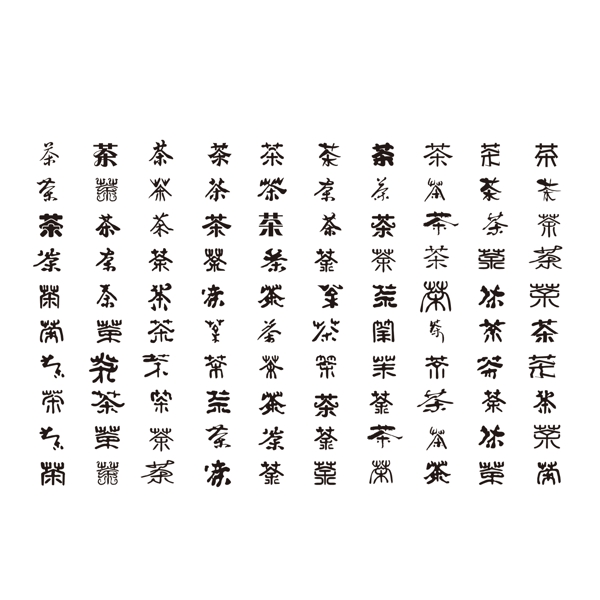 茶 茶 茶 茶 茶 茶 茶 茶 茶 茶
茶 茶 茶 茶 茶 茶 茶 茶 茶 茶
茶 茶 茶 茶 茶 茶 茶 茶 茶 茶
茶 茶 茶 茶 茶 茶 茶 茶 茶 茶
茶 茶 茶 茶 茶 茶 茶 茶 茶 茶
茶 茶 茶 茶 茶 茶 茶 茶 茶 茶
茶 茶 茶 茶 茶 茶 茶 茶 茶 茶
茶 茶 茶 茶 茶 茶 茶 茶 茶 茶
茶 茶 茶 茶 茶 茶 茶 茶 茶 茶
茶 茶 茶 茶 茶 茶 茶 茶 茶 茶